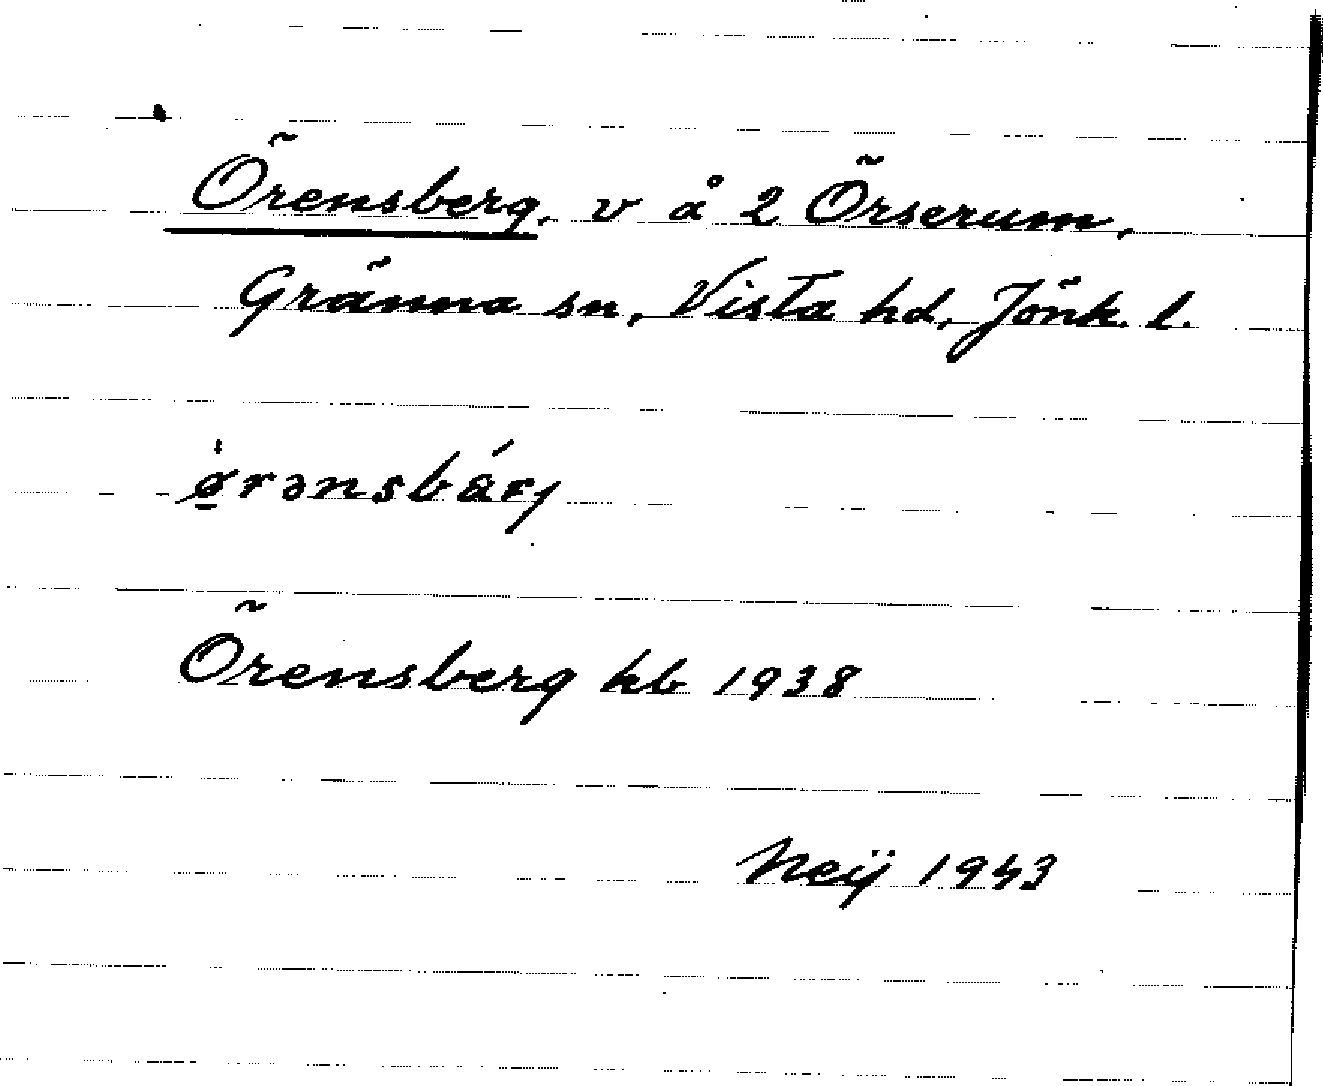 Örensberg, v å 2 Örserum,
Gränna sn, Vista hd, Jönk. l.
ø̱̀rənsbárj
Örensberg kb 1938
Neij 1943